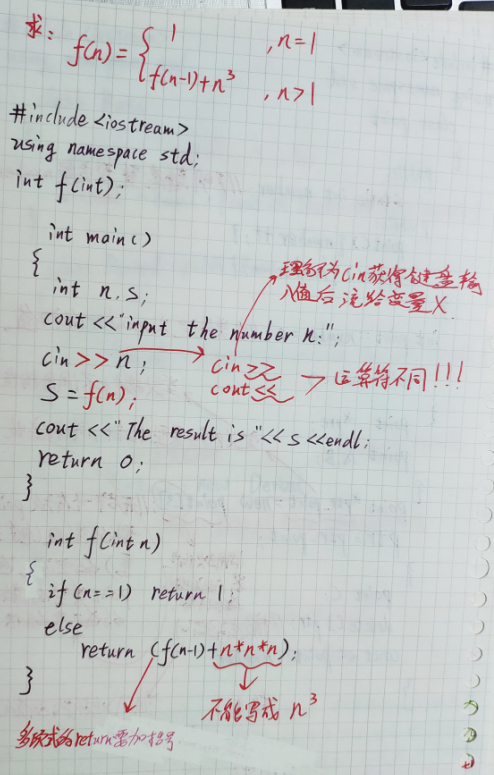 求:
f(n)={ 1 , n=1
f(n-1)+n³ , n>1
#include <iostream>
using namespace std;
int f(int);
int main()
{
int n,s;
cout <<"input the number n:";
cin>> n;
S=f(n);
cout <<"The result is "<< s <<endl;
return 0;
}
理解为cin获得键盘输
入值后流给变量X.
cin>>
cout<<
运算符不同!!!
int f(int n)
{
if(n==1) return 1;
else
return (f(n-1)+n*n*n);
}
不能写成 n³
多项式的return要加括号